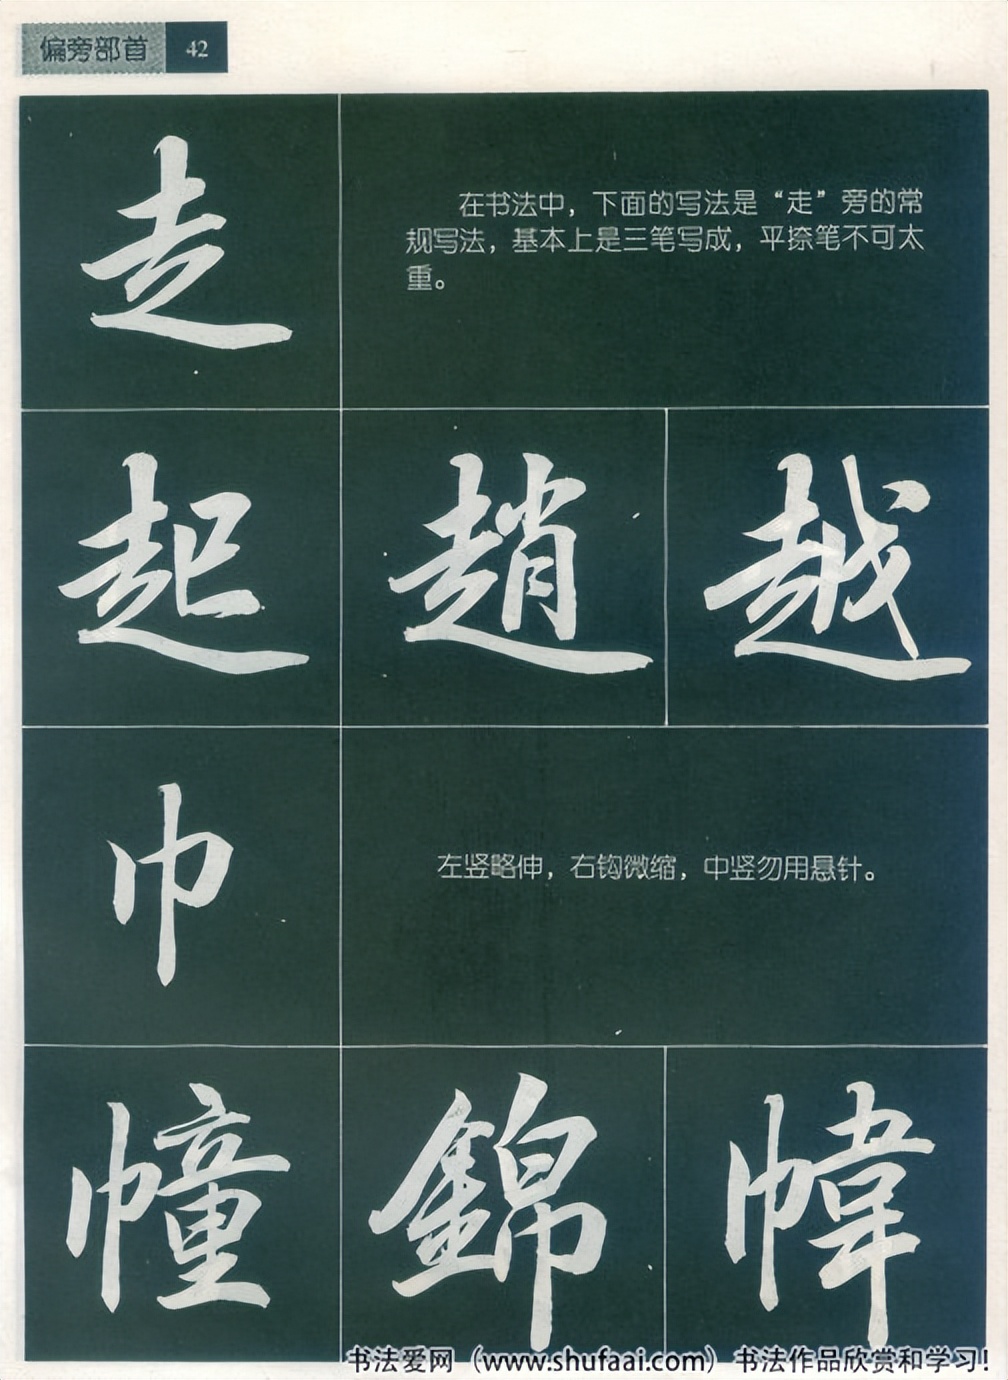 偏旁部首 42
走
在书法中，下面的写法是“走”旁的常
规写法，基本上是三笔写成，平捺笔不可太
重。
起 趙 越
巾
左竖略伸，右钩微缩，中竖勿用悬针。
幢 錦 幃
书法爱网（www.shufaai.com）书法作品欣赏和学习！